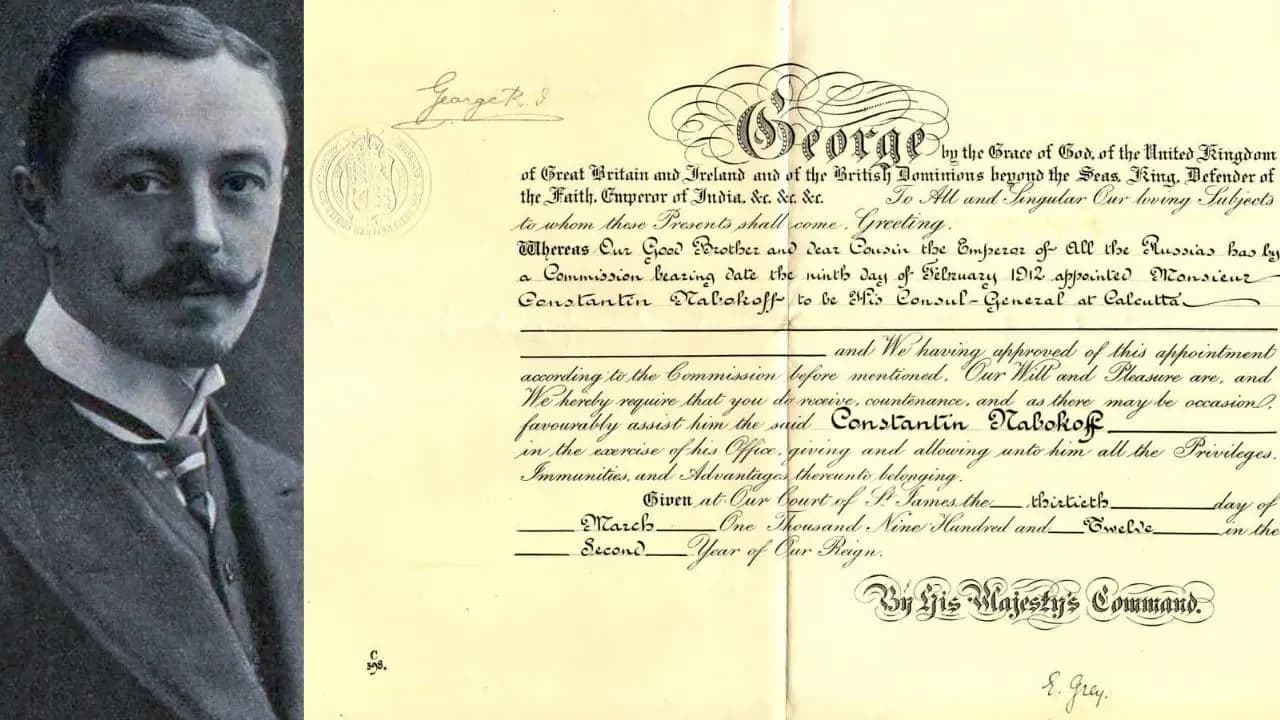 George R. I
George by the Grace of God, of the United Kingdom
of Great Britain and Ireland and of the British Dominions beyond the Seas, King, Defender of
the Faith, Emperor of India, &c. &c. &c. To All and Singular Our loving Subjects
to whom these Presents shall come, Greeting.
Whereas Our Good Brother and dear Cousin the Emperor of All the Russias has by
a Commission bearing date the ninth day of February 1912 appointed Monsieur
Constantin Nabokoff to be His Consul-General at Calcutta
and We having approved of this appointment
according to the Commission before mentioned, Our Will and Pleasure are, and
We hereby require that you do receive, countenance, and as there may be occasion,
favourably assist him the said Constantin Nabokoff
in the exercise of his Office, giving and allowing unto him all the Privileges,
Immunities, and Advantages thereunto belonging.
Given at Our Court of St. James, the thirtieth day of
March One Thousand Nine Hundred and Twelve in the
Second Year of Our Reign.
By His Majesty's Command.
C
398.
E. Grey.